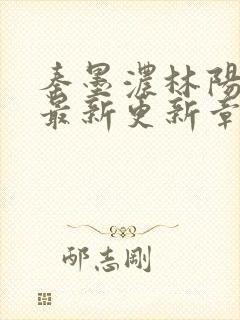 秦墨濃林陽
最新更新章
邴志剛